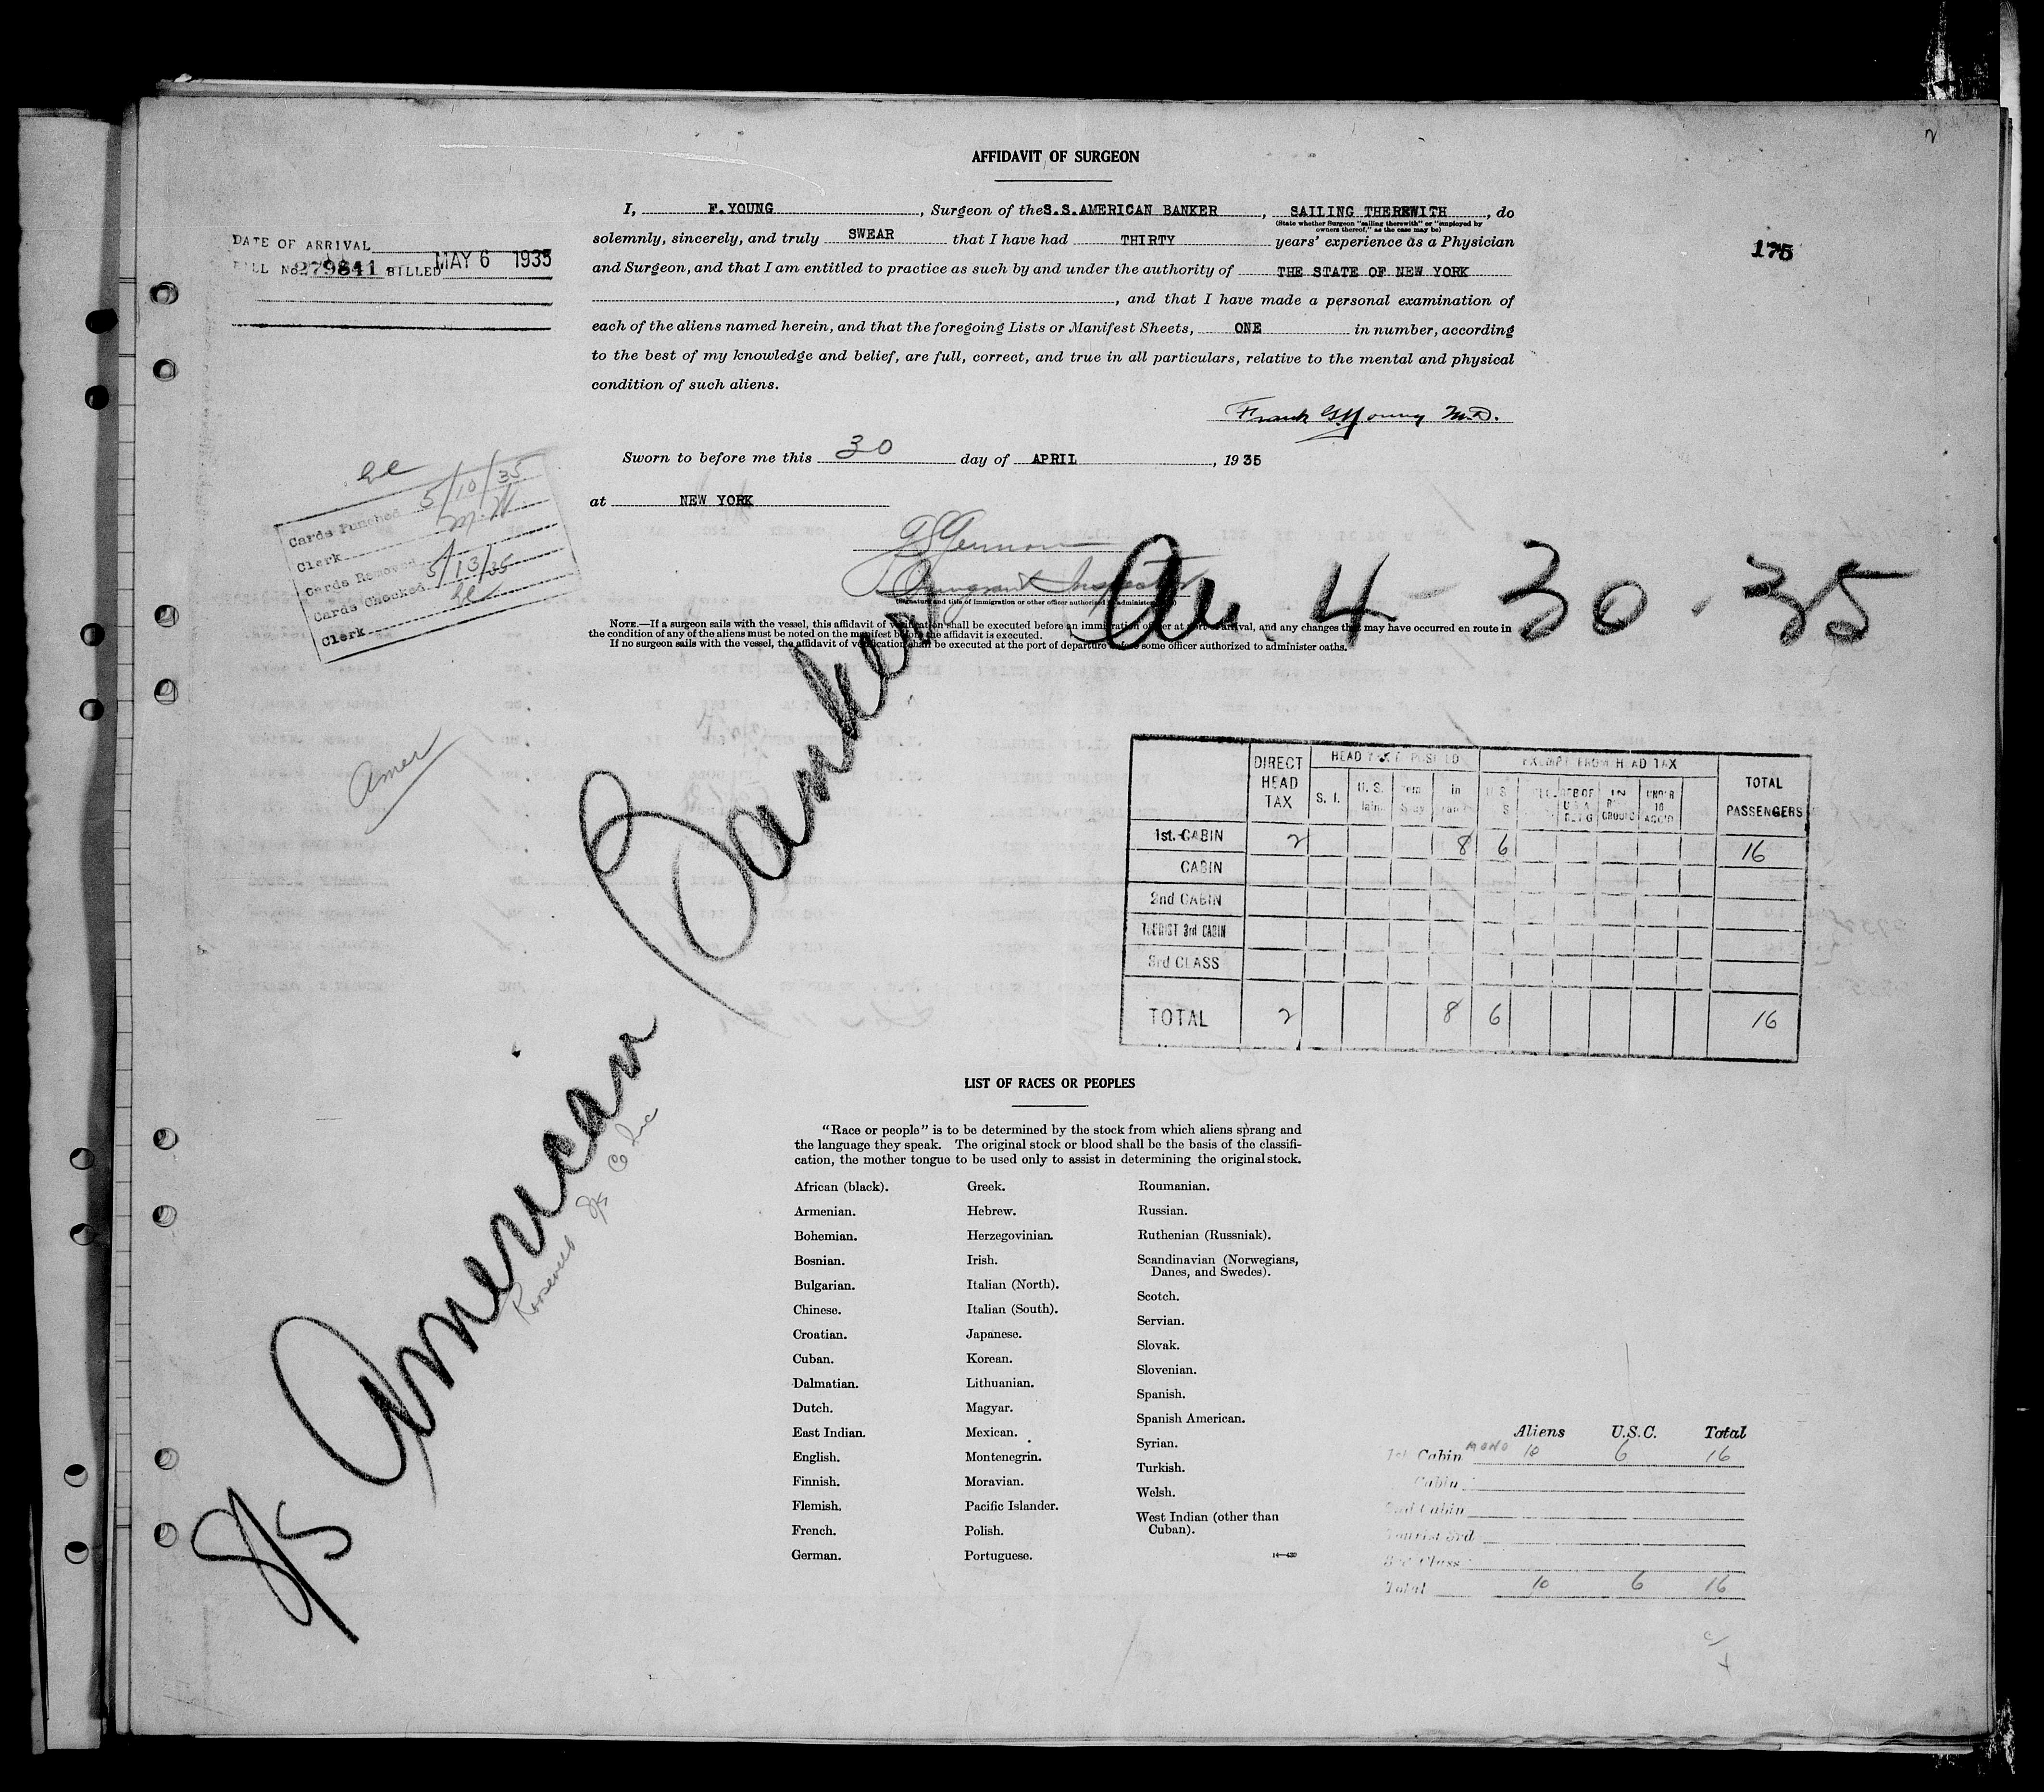 2
AFFIDAVIT OF SURGEON
I, F. YOUNG, Surgeon of the S.S. AMERICAN BANKER, SAILING THEREWITH, do
(State whether Surgeon "sailing therewith" or "employed by
owners thereof," as the case may be)
solemnly, sincerely, and truly SWEAR that I have had THIRTY years' experience as a Physician
and Surgeon, and that I am entitled to practice as such by and under the authority of THE STATE OF NEW YORK
, and that I have made a personal examination of
each of the aliens named herein, and that the foregoing Lists or Manifest Sheets, ONE in number, according
to the best of my knowledge and belief, are full, correct, and true in all particulars, relative to the mental and physical
condition of such aliens.
DATE OF ARRIVAL
BILL No. 279841 BILLED MAY 6 1935
175
Frank G. Young M.D.
Sworn to before me this 30 day of APRIL, 1935
at NEW YORK
Immigrant Inspector
(Signature and title of immigration or other officer authorized to administer oaths)
Cards Punched 5/10/35
Clerk M.H.
Cards Removed
Cards Checked 5/13/35
Clerk
NOTE.—If a surgeon sails with the vessel, this affidavit of verification shall be executed before an immigration officer at port of arrival, and any changes that may have occurred en route in
the condition of any of the aliens must be noted on the manifest before the affidavit is executed.
If no surgeon sails with the vessel, the affidavit of verification shall be executed at the port of departure before some officer authorized to administer oaths.
Arr. 4-30-35
Amer
S/S American Banker
Roosevelt S/S Co Inc
DIRECT HEAD TAX
HEAD TAX DEPOSITED
EXEMPT FROM HEAD TAX
TOTAL PASSENGERS
S. I. U. S. In Trans IN UNDER 16 ACC'D
1st. CABIN 2 8 6 16
CABIN
2nd CABIN
TOURIST 3rd CABIN
3rd CLASS
TOTAL 2 8 6 16
LIST OF RACES OR PEOPLES
"Race or people" is to be determined by the stock from which aliens sprang and
the language they speak. The original stock or blood shall be the basis of the classifi-
cation, the mother tongue to be used only to assist in determining the original stock.
African (black).
Armenian.
Bohemian.
Bosnian.
Bulgarian.
Chinese.
Croatian.
Cuban.
Dalmatian.
Dutch.
East Indian.
English.
Finnish.
Flemish.
French.
German.
Greek.
Hebrew.
Herzegovinian.
Irish.
Italian (North).
Italian (South).
Japanese.
Korean.
Lithuanian.
Magyar.
Mexican.
Montenegrin.
Moravian.
Pacific Islander.
Polish.
Portuguese.
Roumanian.
Russian.
Ruthenian (Russniak).
Scandinavian (Norwegians,
Danes, and Swedes).
Scotch.
Servian.
Slovak.
Slovenian.
Spanish.
Spanish American.
Syrian.
Turkish.
Welsh.
West Indian (other than
Cuban).
Aliens U.S.C. Total
1st Cabin MONO 10 6 16
Cabin
2nd Cabin
Tourist 3rd
3rd Class
Total 10 6 16